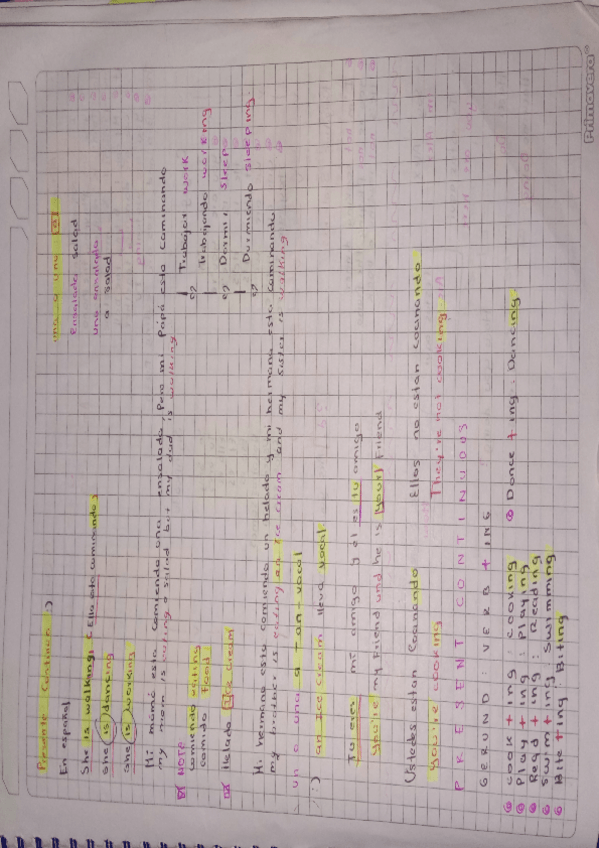 Presente Continuo :)
una o unu [a]
En español
Ensalada salad
She is walking: Ella está caminando :
una ensalada
a salad
she is dancing
she is working
Mi mamá esta comiendo una ensalada, Pero mi Pápá esta caminando
my mom is eating a salad but my dad is walking
NOTA
comiendo eating
comida Food
Helado Ice cream
Trabajar work
Trabajando working
Dormir sleep
Durmiendo sleeping.
Mi hermano esta comiendo un helado y mi hermana esta caminando
my brother is eating an Ice cream and my sister is walking
un o una a - an - vocal
an Ice cream lleva vocal
:)
Tu eres mi amigo y el es tu amigo
you're my Friend and he is your Friend
Ustedes estan Cocinando
Ellos no estan cocinando
you're cooking
They're not cooking
PRESENT CONTINUOUS
GERUND: VERB + ING
cook + ing : cooking
Dance + ing : Dancing
Play + ing : Playing
Read + ing : Reading
Swim + ing Swimming
Bite + ing Biting
Primavera